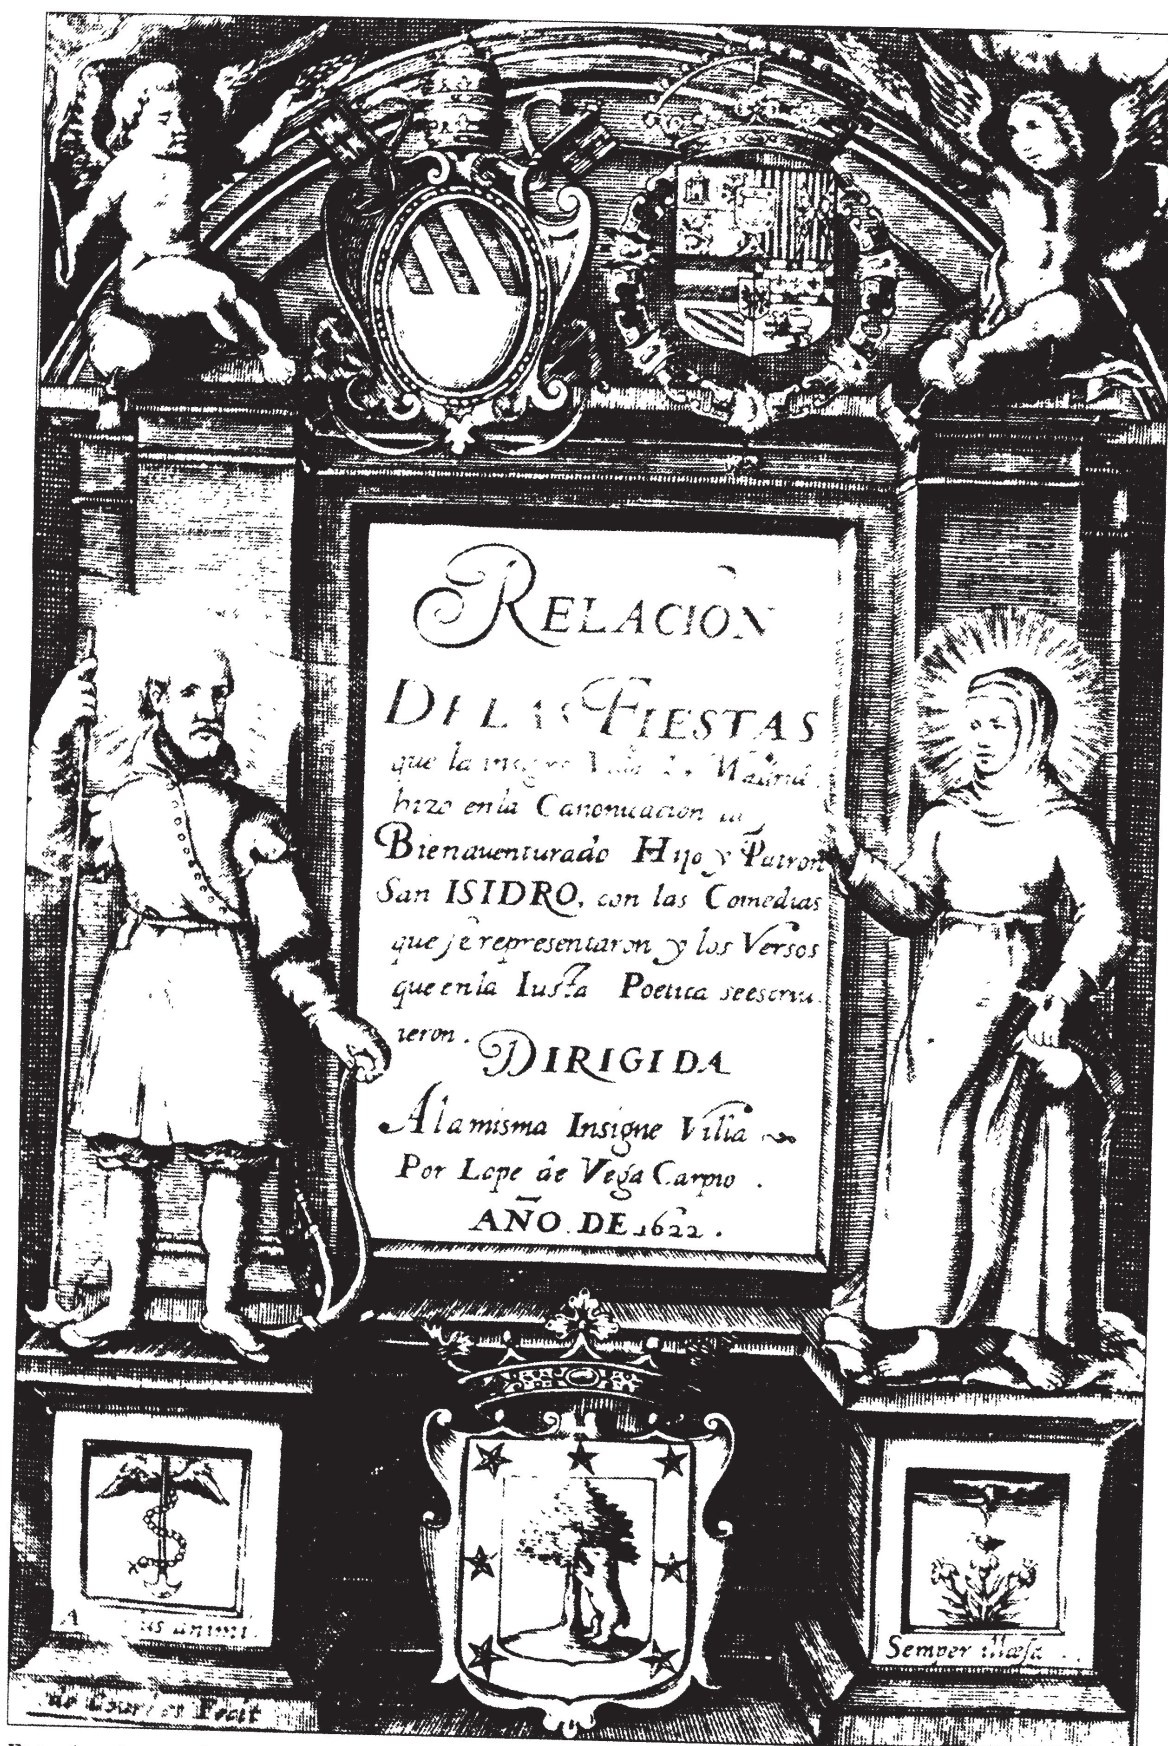 RELACION
DE LAS FIESTAS
que la insigne Villa de Madrid
hizo en la Canonicacion
Bienauenturado Hijo y Patron
San ISIDRO, con las Comedias
que se representaron y los Versos
que en la Iusta Poetica se escriu
ieron.
DIRIGIDA
A la misma Insigne Villa
Por Lope de Vega Carpio.
AÑO. DE 1622.
animi.
Semper illæsa
de Courbes Fecit